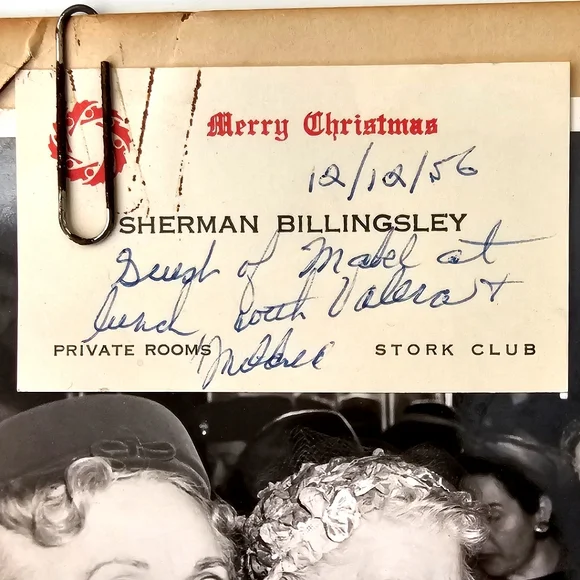 Merry Christmas
12/12/56
SHERMAN BILLINGSLEY
Guest of Mabel at
lunch with Valera +
PRIVATE ROOMS
STORK CLUB